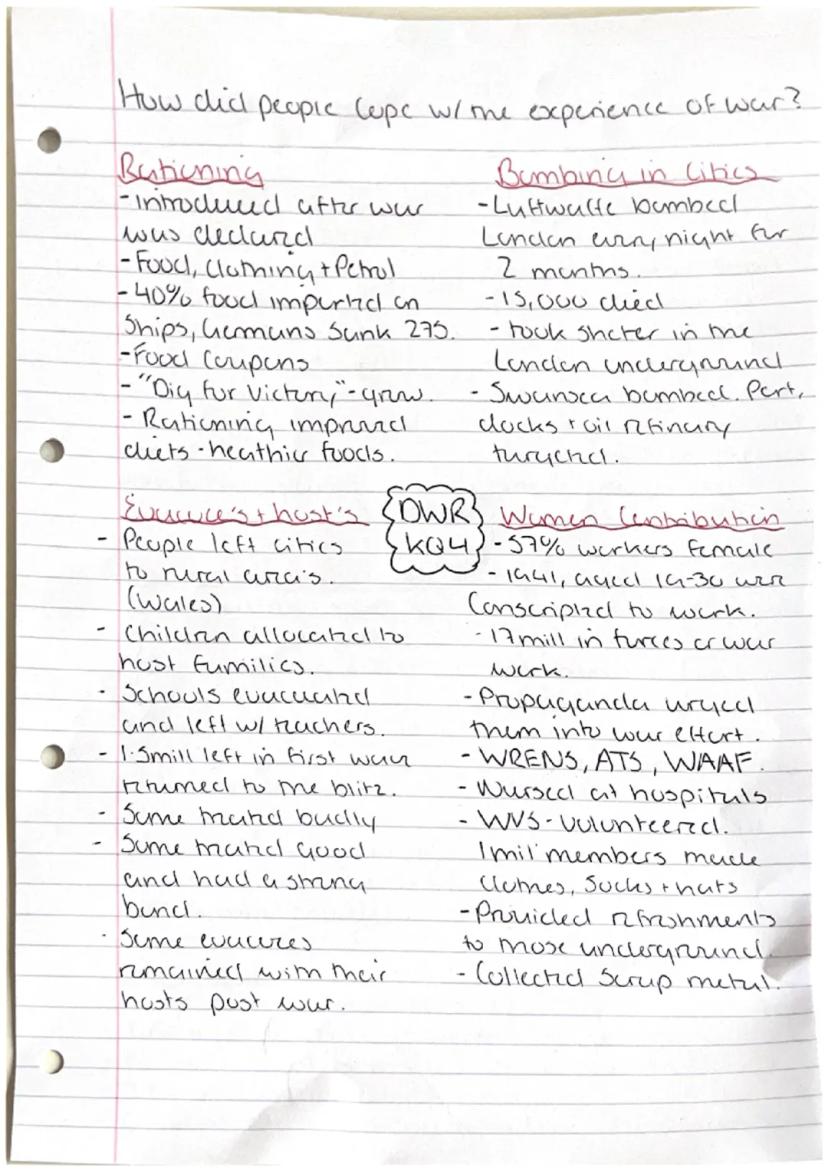 How did people cope w/ the experience of war?
Rationing
- introduced after war
was declared
- Food, clothing + Petrol
- 40% food imported on
ships, Germans sunk 275.
- Food coupons
- "Dig for Victory" - grow.
- Rationing improved
diets - healthier foods.
Bombing in Cities
- Luftwaffe bombed
London every night for
2 months.
- 15,000 died
- took shelter in the
London underground
- Swansea bombed. Port,
docks + oil refinery
targeted.
DWR
KQ4
Evacuee's + host's
- People left cities
to rural area's.
(Wales)
- Children allocated to
host families.
- Schools evacuated
and left w/ teachers.
- 1.5mill left in first wave
returned to the blitz.
- Some treated badly
- Some treated good
and had a strong
bond.
- Some evacuees
remained with their
hosts post war.
Women Contribution
- 57% workers female
- 1941, aged 19-30 were
conscripted to work.
- 17mill in forces or war
work.
- Propaganda urged
them into war effort.
- WRENS, ATS, WAAF.
- Nursed at hospitals
- WVS - volunteered.
1mil members made
clothes, socks + hats
- Provided refreshments
to those underground.
- Collected scrap metal.